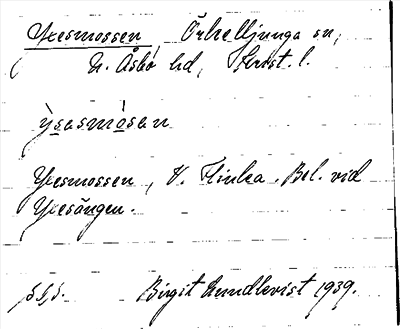 Yxesmossen, Örkelljunga sn,
N. Åsbo hd, Krist. l.
Yxesmossen, V. Flinka. Bel. vid
Yxesängen.
Birgit Lundkvist 1939.